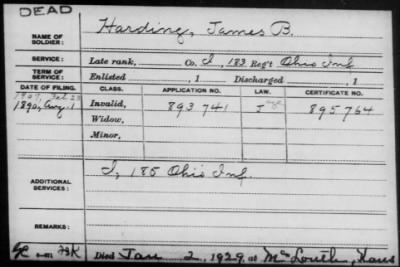 DEAD
NAME OF SOLDIER: Harding, James B.
SERVICE: Late rank, Co. I, 183 Reg't Ohio Inf
TERM OF SERVICE: Enlisted , 1 Discharged , 1
DATE OF FILING. CLASS. APPLICATION NO. LAW. CERTIFICATE NO.
1890, Aug. 1 Invalid, 893741 895764
Widow,
Minor,
ADDITIONAL SERVICES: I, 185 Ohio Inf.
REMARKS:
Died Jan 2, 1929, at McLouth, Kans